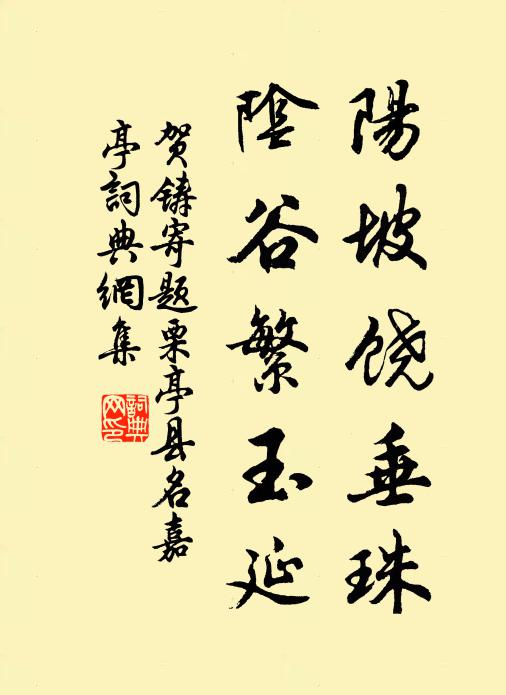 陽坡饶垂珠
陰谷繁玉延
贺鋳寄题栗亭县名嘉
亭詞典網集
詞典
网印